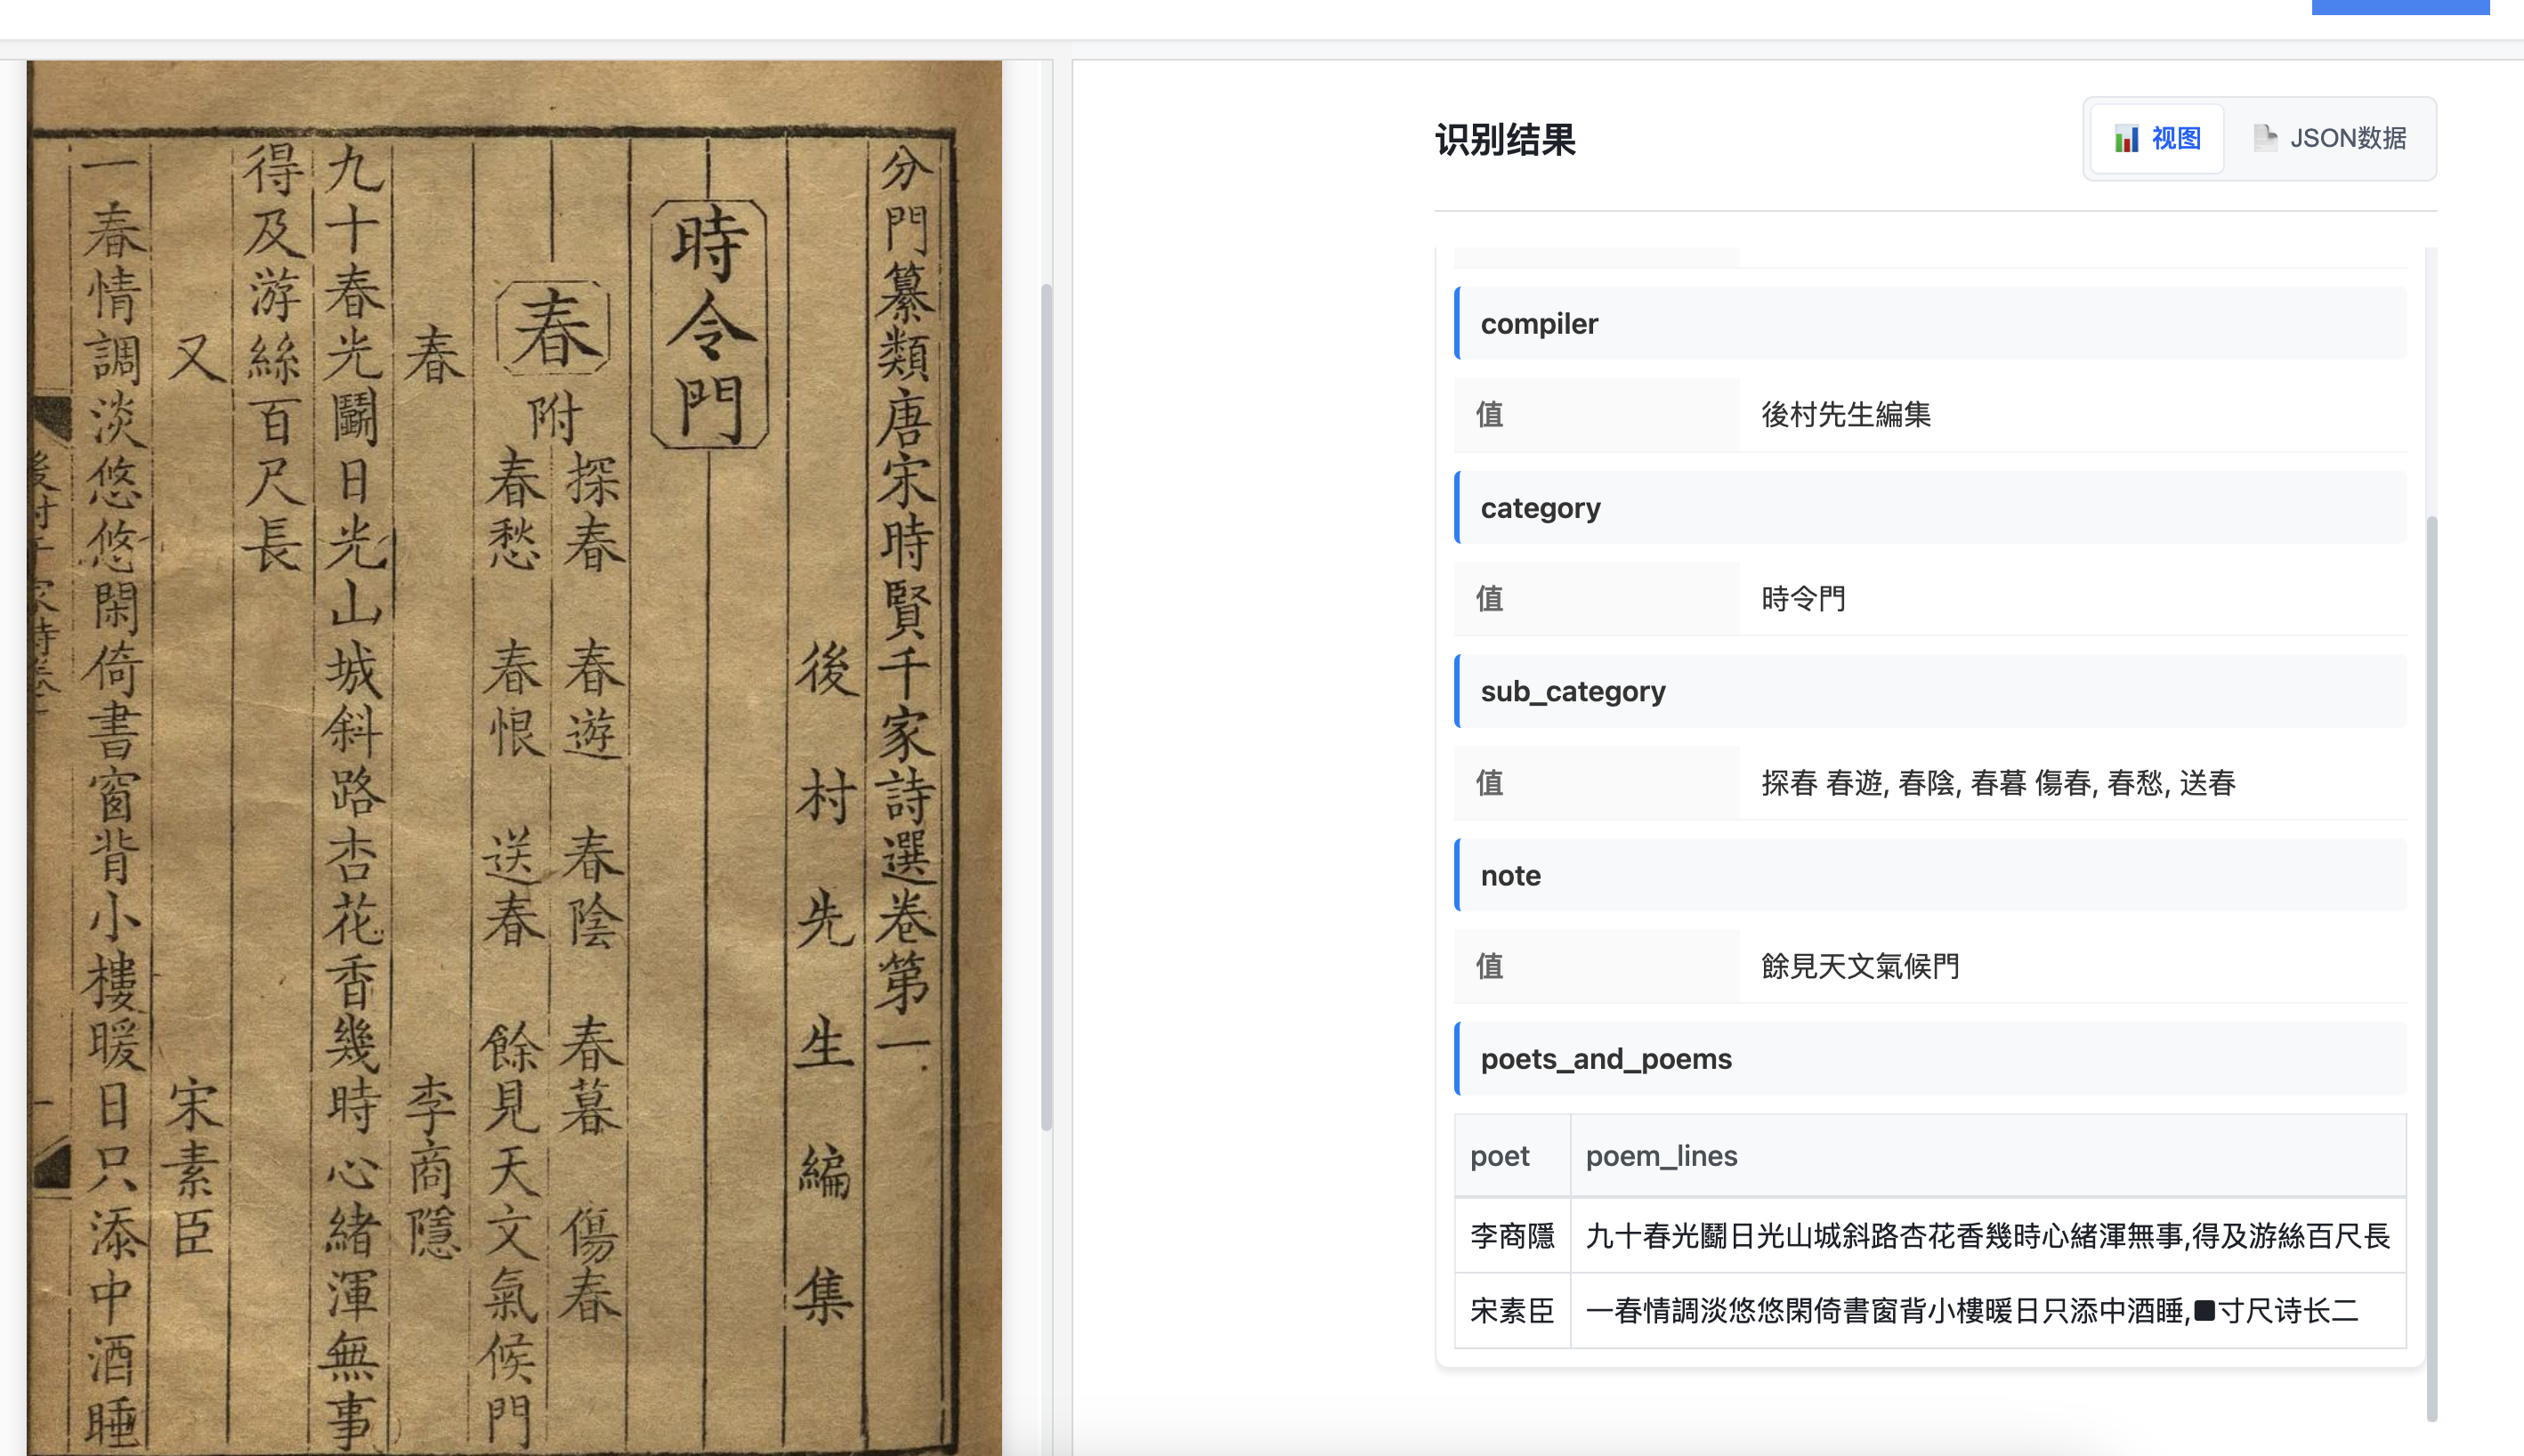 分門纂類唐宋時賢千家詩選卷第一
後村先生編集
時令門
春附
探春 春遊 春陰 春暮 傷春
春愁 春恨 送春 餘見天文氣候門
春 李商隱
九十春光鬭日光山城斜路杏花香幾時心緒渾無事
得及游絲百尺長
又 宋素臣
一春情調淡悠悠閑倚書窗背小樓暖日只添中酒睡
识别结果
视图
JSON数据
compiler
值 後村先生編集
category
值 時令門
sub_category
值 探春 春遊, 春陰, 春暮 傷春, 春愁, 送春
note
值 餘見天文氣候門
poets_and_poems
poet poem_lines
李商隱 九十春光鬭日光山城斜路杏花香幾時心緒渾無事,得及游絲百尺長
宋素臣 一春情調淡悠悠閑倚書窗背小樓暖日只添中酒睡,■寸尺诗长二